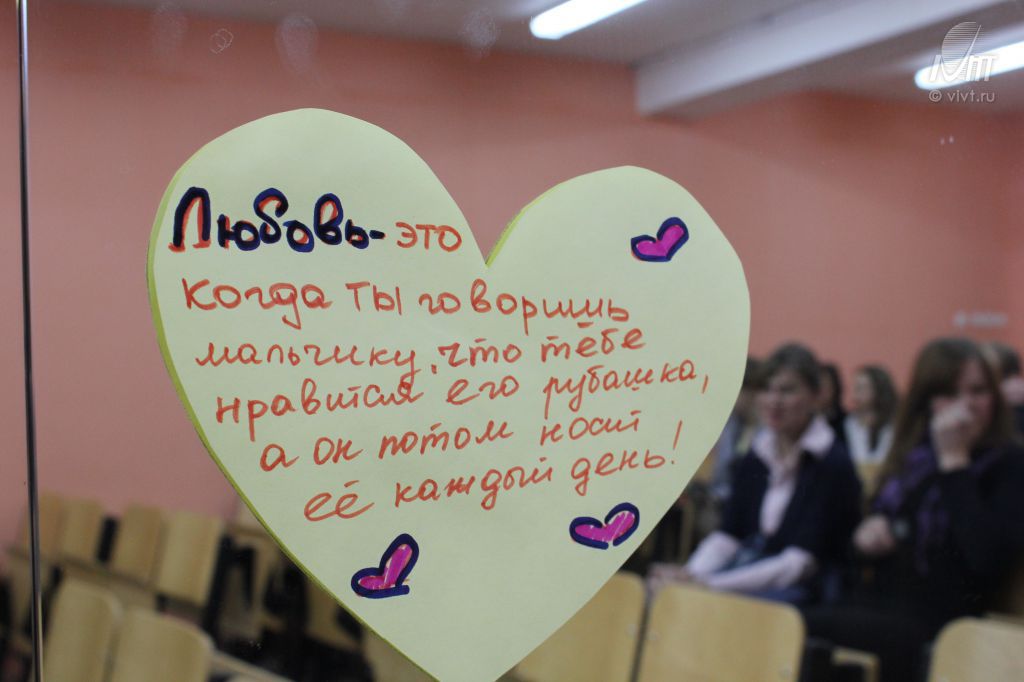 Любовь- это
когда ты говоришь
мальчику, что тебе
нравится его рубашка,
а он потом носит
её каждый день!
© vivt.ru